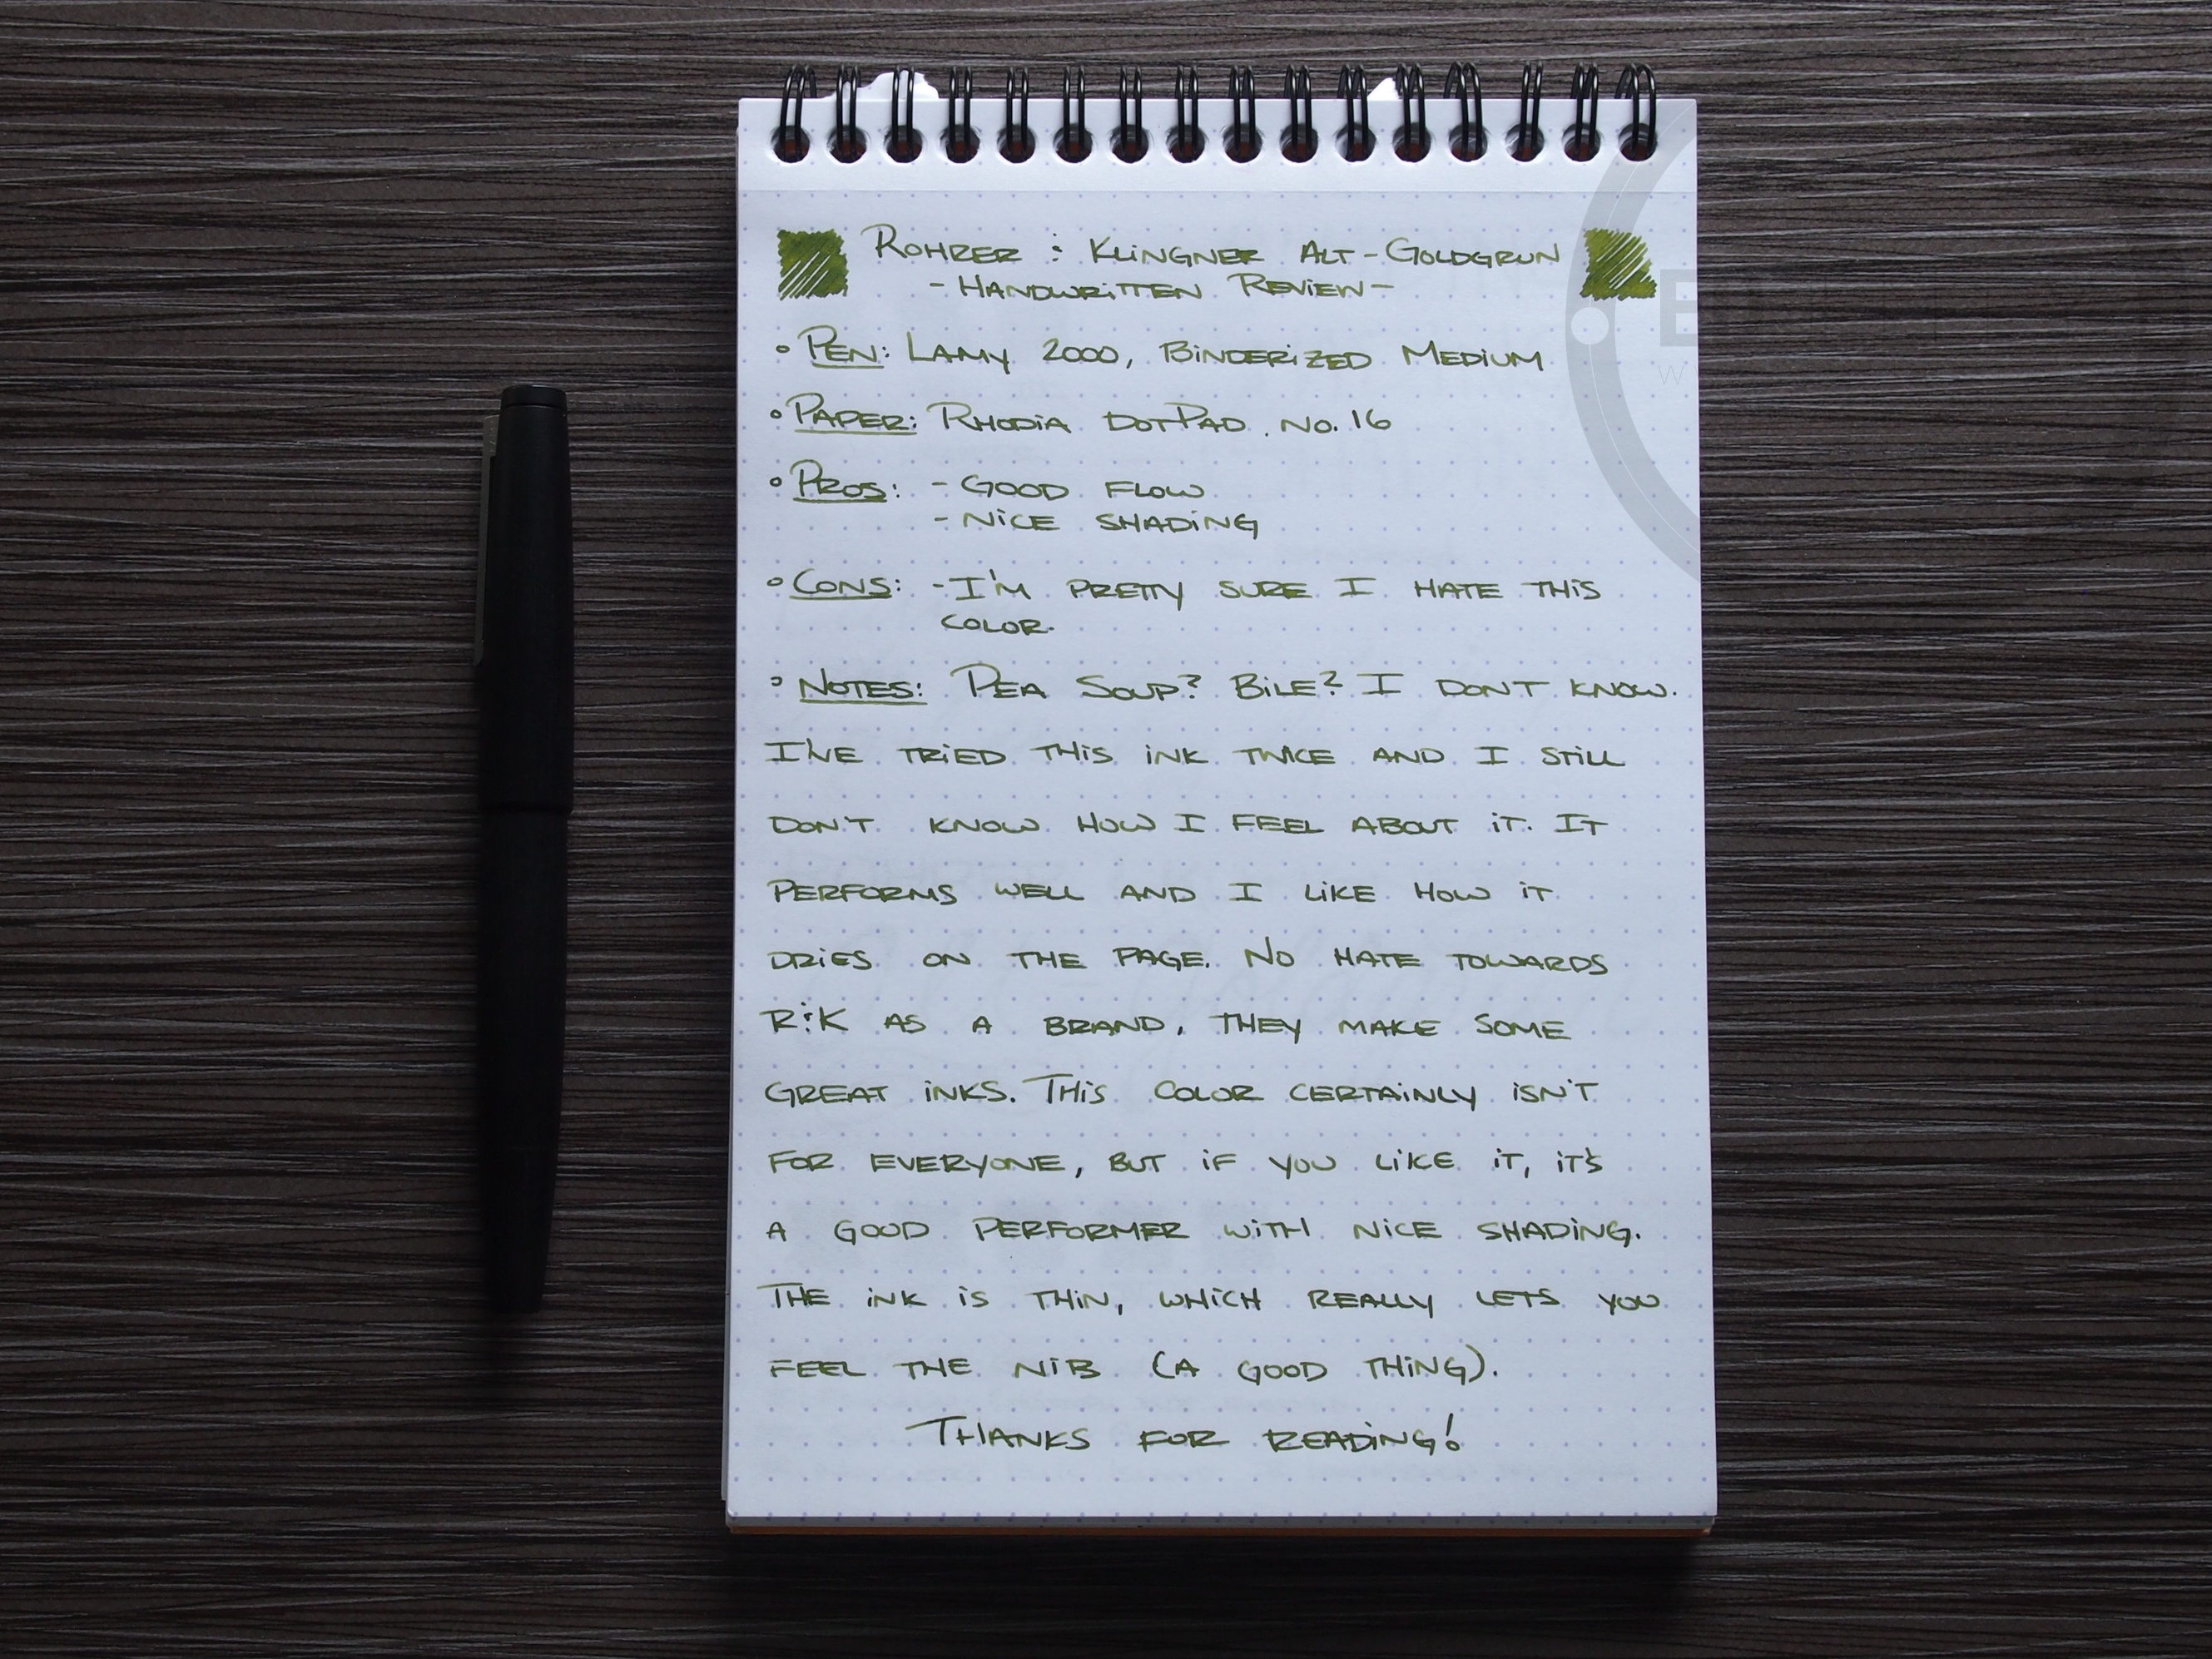 ROHRER & KLINGNER ALT-GOLDGRUN
- HANDWRITTEN REVIEW -
° PEN: LAMY 2000, BINDERIZED MEDIUM
° PAPER: RHODIA DOTPAD NO. 16
° PROS: - GOOD FLOW
- NICE SHADING
° CONS: - I'M PRETTY SURE I HATE THIS
COLOR.
° NOTES: PEA SOUP? BILE? I DON'T KNOW.
I'VE TRIED THIS INK TWICE AND I STILL
DON'T KNOW HOW I FEEL ABOUT IT. IT
PERFORMS WELL AND I LIKE HOW IT
DRIES ON THE PAGE. NO HATE TOWARDS
R&K AS A BRAND, THEY MAKE SOME
GREAT INKS. THIS COLOR CERTAINLY ISN'T
FOR EVERYONE, BUT IF YOU LIKE IT, IT'S
A GOOD PERFORMER WITH NICE SHADING.
THE INK IS THIN, WHICH REALLY LETS YOU
FEEL THE NIB (A GOOD THING).
THANKS FOR READING!